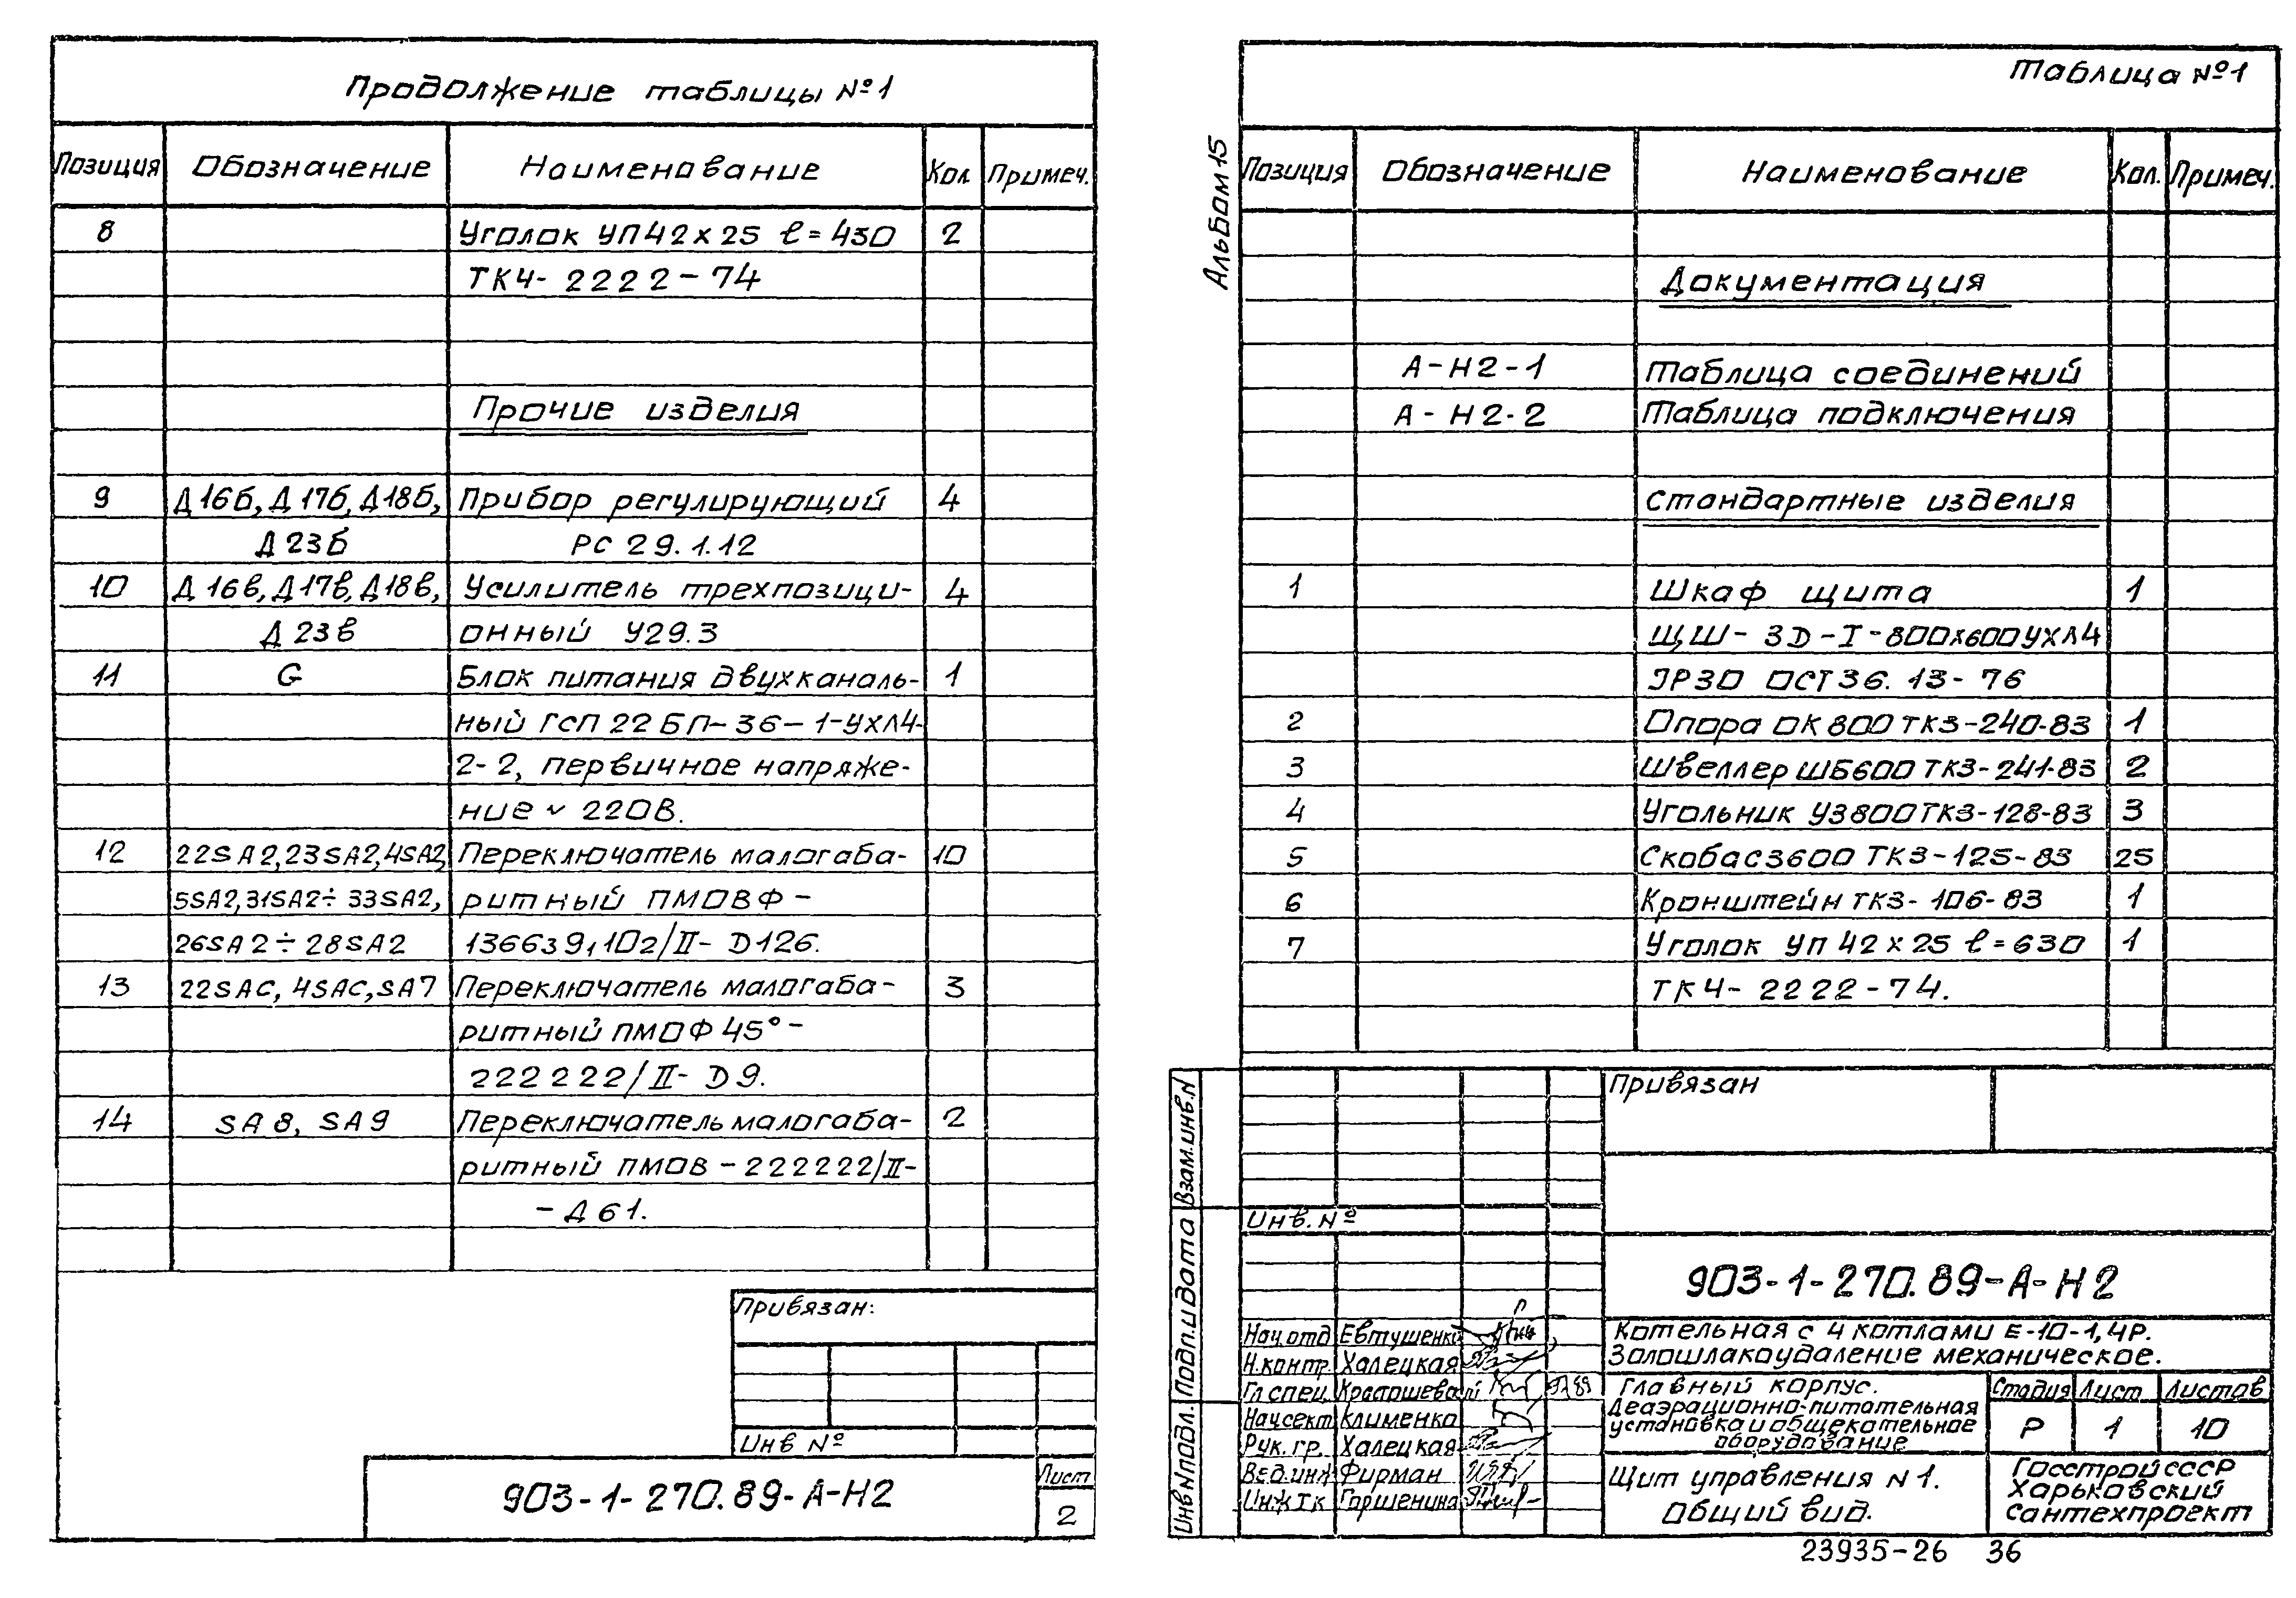 Продолжение таблицы №1
Позиция Обозначение Наименование Кол Примеч.
8 Уголок УП42х25 ℓ=430 2
ТК4-2222-74
Прочие изделия
9 Д16б, Д17б, Д18б, Прибор регулирующий 4
Д23б РС 29.1.12
10 Д16в, Д17в, Д18в, Усилитель трехпозици- 4
Д23в онный У29.3
11 G Блок питания двухканаль- 1
ный ГСП 22БП-36-1-УХЛ4-
2-2, первичное напряже-
ние ~ 220В.
12 22SA2,23SA2,4SA2, Переключатель малогаба- 10
5SA2,31SA2÷33SA2, ритный ПМОВФ-
26SA2÷28SA2 136639,102/II-D126.
13 22SAC, 4SAC, SA7 Переключатель малогаба- 3
ритный ПМОФ45°-
222222/II-D9.
14 SA8, SA9 Переключатель малогаба- 2
ритный ПМОВ-222222/II-
-Д61.
Привязан:
Инв №
903-1-270.89-А-Н2
Лист
2
Альбом 15
Таблица №1
Позиция Обозначение Наименование Кол. Примеч.
Документация
А-Н2-1 Таблица соединений
А-Н2-2 Таблица подключения
Стандартные изделия
1 Шкаф щита 1
ЩШ-3D-I-800х600УХЛ4
IP30 ОСТ36.13-76
2 Опора ОК800 ТК3-240-83 1
3 Швеллер ШБ600 ТК3-241-83 2
4 Угольник У3800 ТК3-128-83 3
5 Скоба С3600 ТК3-125-83 25
6 Кронштейн ТК3-106-83 1
7 Уголок УП 42х25 ℓ=630 1
ТК4-2222-74.
Привязан
Инв. №
Взам.инв.N
Подп.и дата
Инв N подл.
903-1-270.89-А-Н2
Котельная с 4 котлами Е-10-1,4Р.
Золошлакоудаление механическое.
Нач.отд Евтушенко
Н.контр. Халецкая
Гл спец. Красошевский
Нач.сект Клименко
Рук. гр. Халецкая
Вед.инж Фирман
Инж Iк Горшенина
Главный корпус.
Деаэрационно-питательная
установка и общекотельное
оборудование
Стадия Лист Листов
Р 1 10
Щит управления N1.
Общий вид.
Госстрой СССР
Харьковский
Сантехпроект
23935-26 36